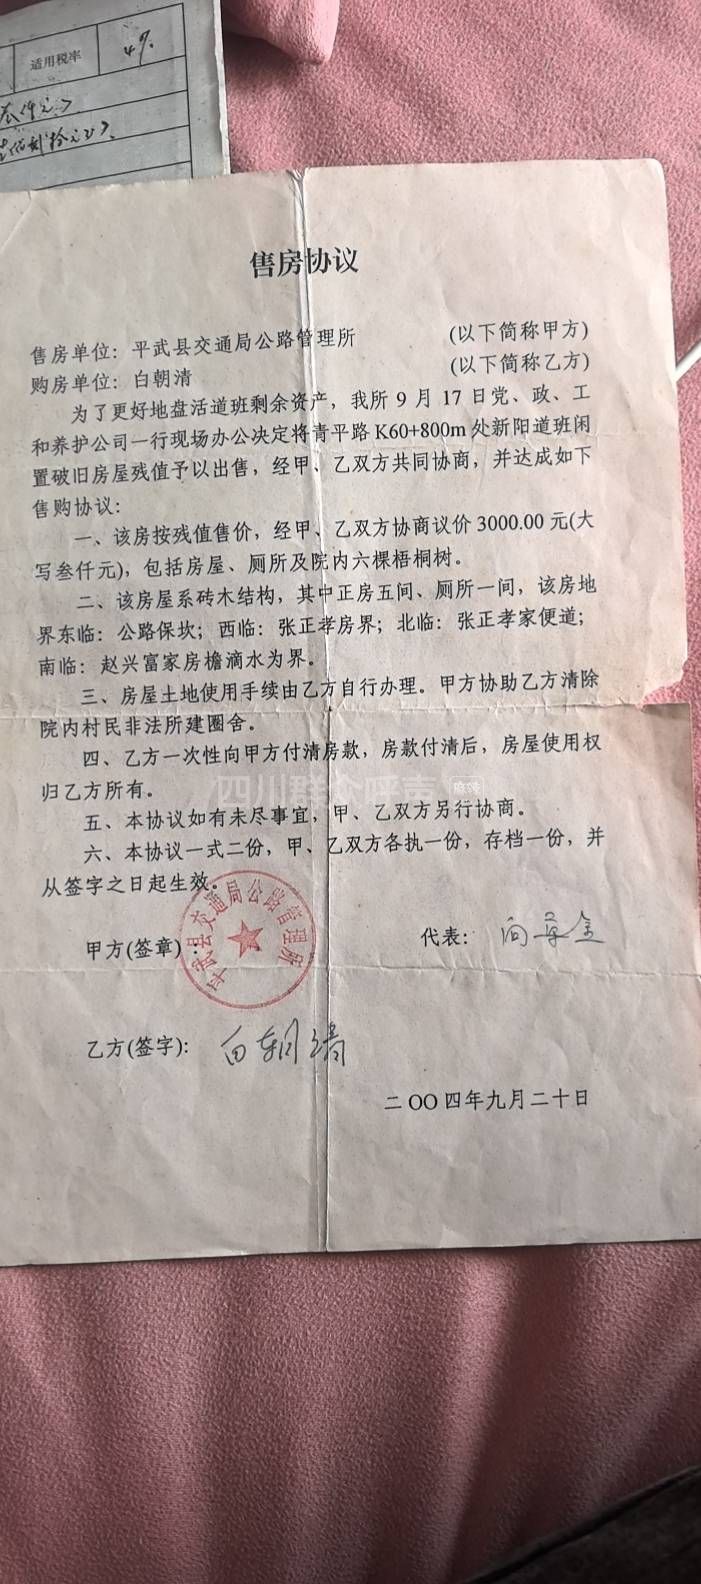 适用税率
4%
售房协议
售房单位：平武县交通局公路管理所 (以下简称甲方)
购房单位：白朝清 (以下简称乙方)
为了更好地盘活道班剩余资产，我所 9 月 17 日党、政、工
和养护公司一行现场办公决定将青平路 K60+800m 处新阳道班闲
置破旧房屋残值予以出售，经甲、乙双方共同协商，并达成如下
售购协议：
一、该房按残值售价，经甲、乙双方协商议价 3000.00 元(大
写叁仟元)，包括房屋、厕所及院内六棵梧桐树。
二、该房屋系砖木结构，其中正房五间、厕所一间，该房地
界东临：公路保坎；西临：张正孝房界；北临：张正孝家便道；
南临：赵兴富家房檐滴水为界。
三、房屋土地使用手续由乙方自行办理。甲方协助乙方清除
院内村民非法所建圈舍。
四、乙方一次性向甲方付清房款，房款付清后，房屋使用权
归乙方所有。
四川群众呼声 麻辣
五、本协议如有未尽事宜，甲、乙双方另行协商。
六、本协议一式二份，甲、乙双方各执一份，存档一份，并
从签字之日起生效。
平武县交通局公路管理所
甲方(签章)： 代表：
乙方(签字)： 白朝清
二OO四年九月二十日